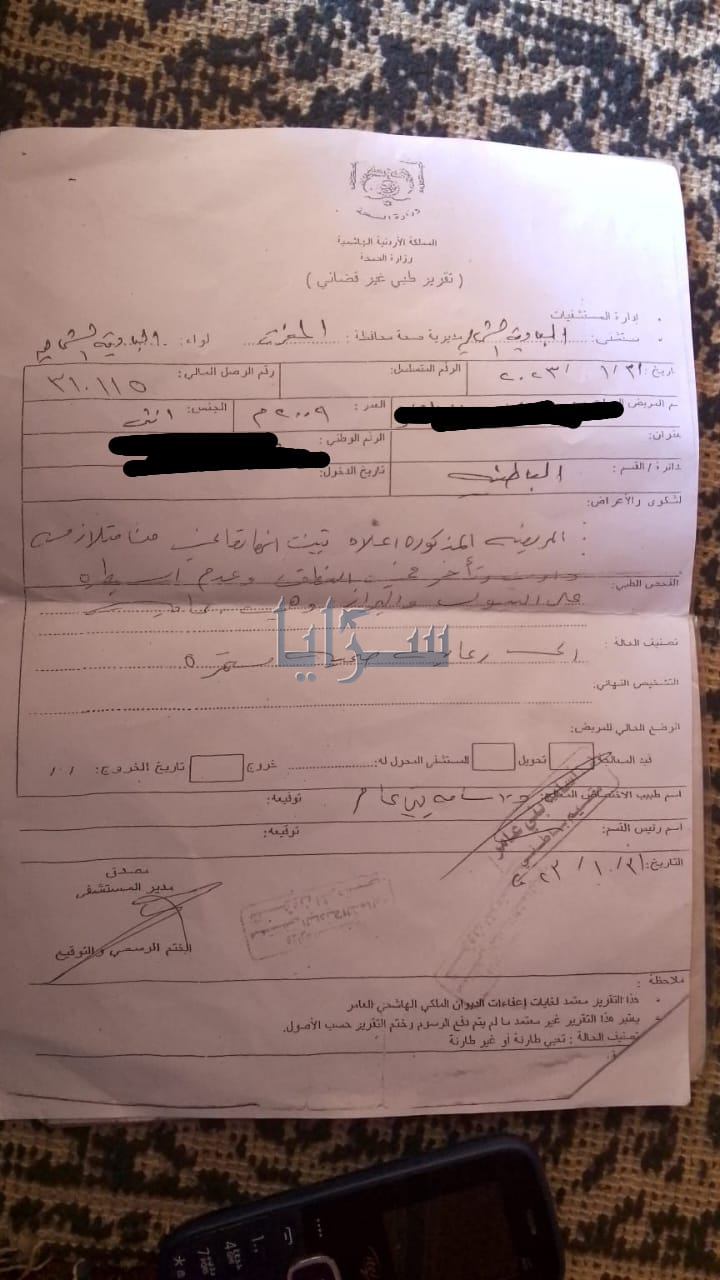 وزارة الصحة
المملكة الأردنية الهاشمية
وزارة الصحة
( تقرير طبي غير قضائي )
إدارة المستشفيات
مستشفى: البادية الشمالية مديرية صحة محافظة: المفرق لواء: البادية الشمالية
تاريخ: ٣١/ ١٠/ ٢٠٢٣ الرقم المتسلسل: رقم الوصل المالي: ٣١٠١١٥
سم المريض العمر: ٢٠٠٩ م الجنس: انثى
عنوان: الرقم الوطني:
دائرة/ القسم: الباطنية تاريخ الدخول:
لشكوى والأعراض:
المريضه المذكوره اعلاه تبين انها تعاني من متلازمة
الفحص الطبي: داون وتأخر في النطق وعدم السيطره
على البول والبراز وهي بحاجة
تصنيف الحالة:
الى رعاية صحية مستمره
التشخيص النهائي:
سرايا
الوضع الحالي للمريض:
قيد المعالجة تحويل المستشفى المحول له: خروج تاريخ الخروج: / /
اسم طبيب الاختصاص المعالج: د. اسامه بني عامر توقيعه:
اسم رئيس القسم: توقيعه:
التاريخ: ٣١/ ١٠/ ٢٣
مصدق
مدير المستشفى
الختم الرسمي والتوقيع
ملاحظة :
هذا التقرير معتمد لغايات إعفاءات الديوان الملكي الهاشمي العامر
يعتبر هذا التقرير غير معتمد ما لم يتم دفع الرسوم وختم التقرير حسب الأصول.
تصنيف الحالة : تعني طارئة أو غير طارئة